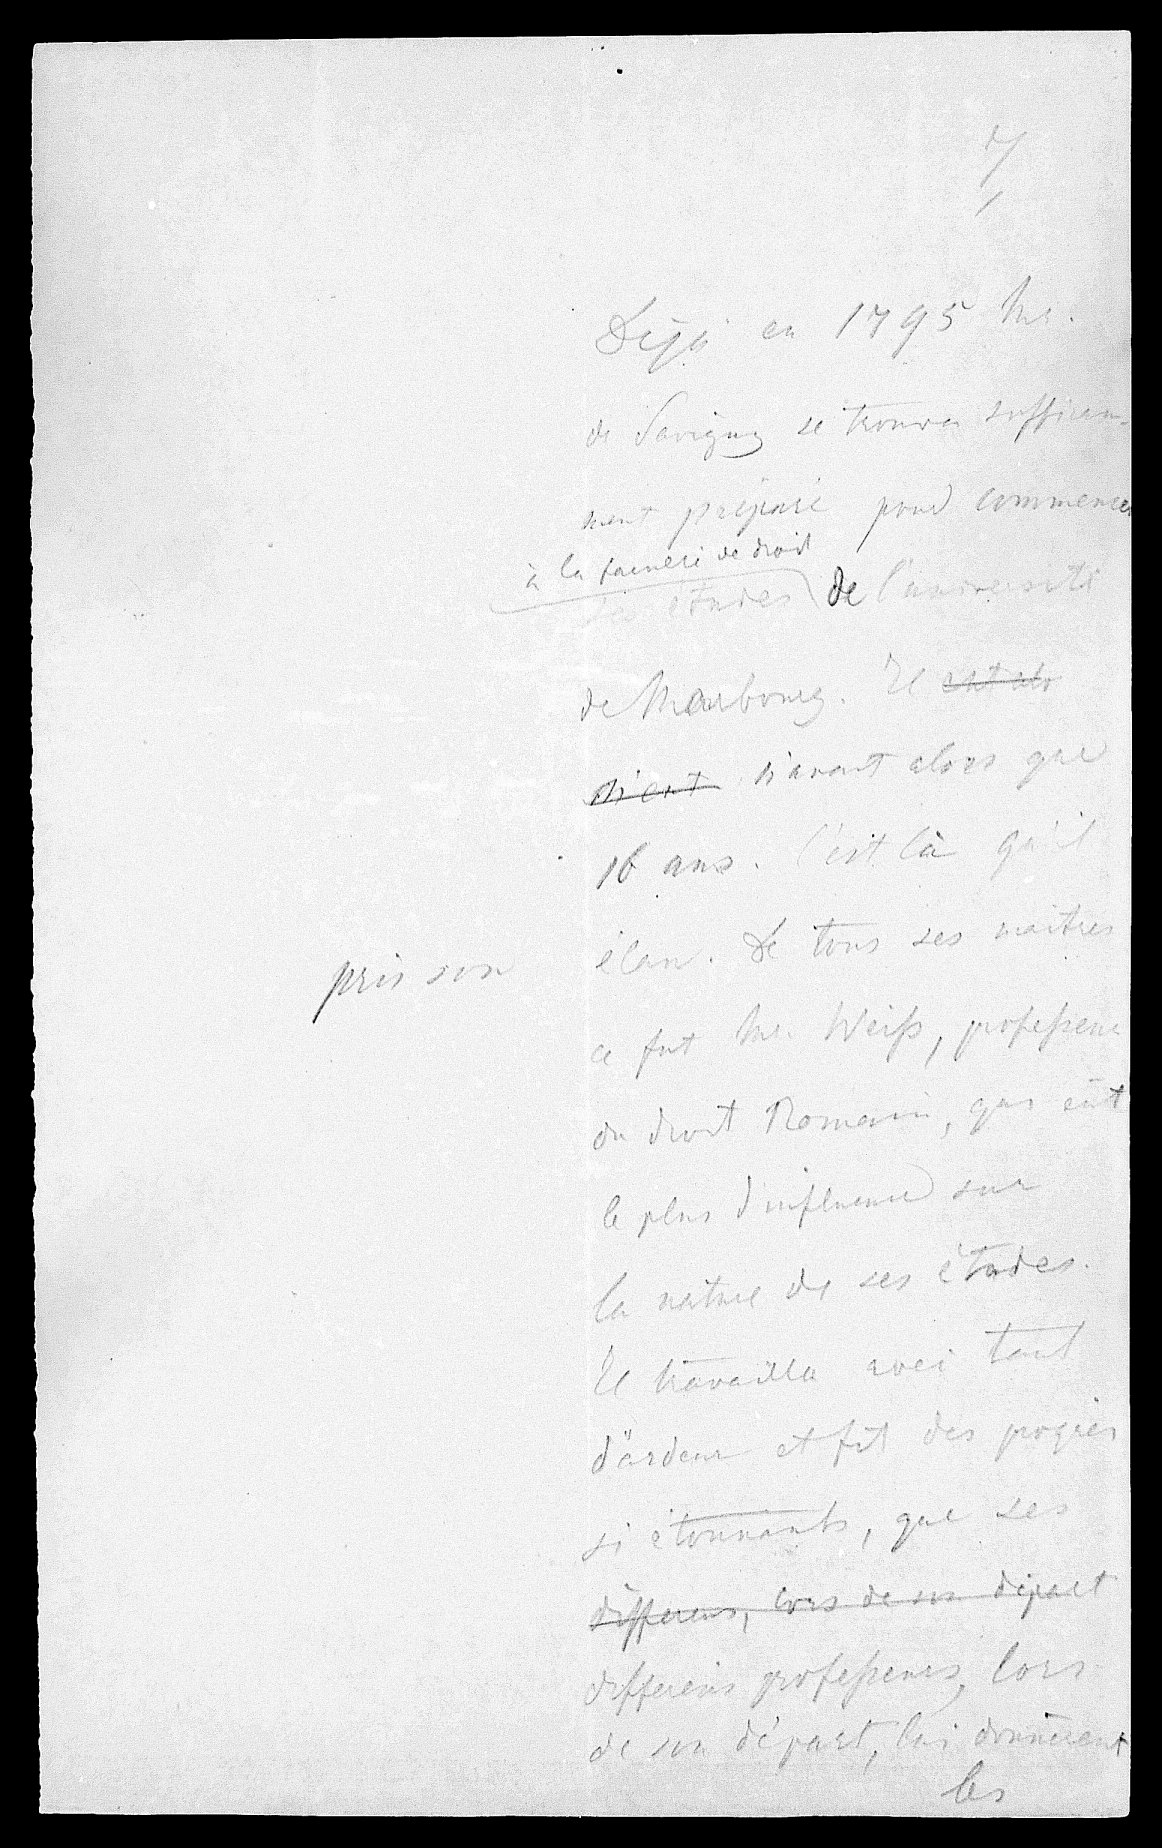 7
Déjà en 1795 Mr.
de Savigny se trouva suffisam-
ment préparé pour commencer
à la faculté de droit
ses études de l'université
de Marbourg. Il
n'eut n'avait alors que
16 ans. C'est là qu'il
pris son élan. De tous ses maitres
ce fut Mr. Weiſs, profeſseur
du droit Romain, qui eût
le plus d'influence sur
la nature de ses études.
Il travailla avec tant
d'ardeur et fit des progrès
si étonnants, que ses
differens, lors de son départ
differens profeſseurs, lors
de son départ, lui donnèrent
les